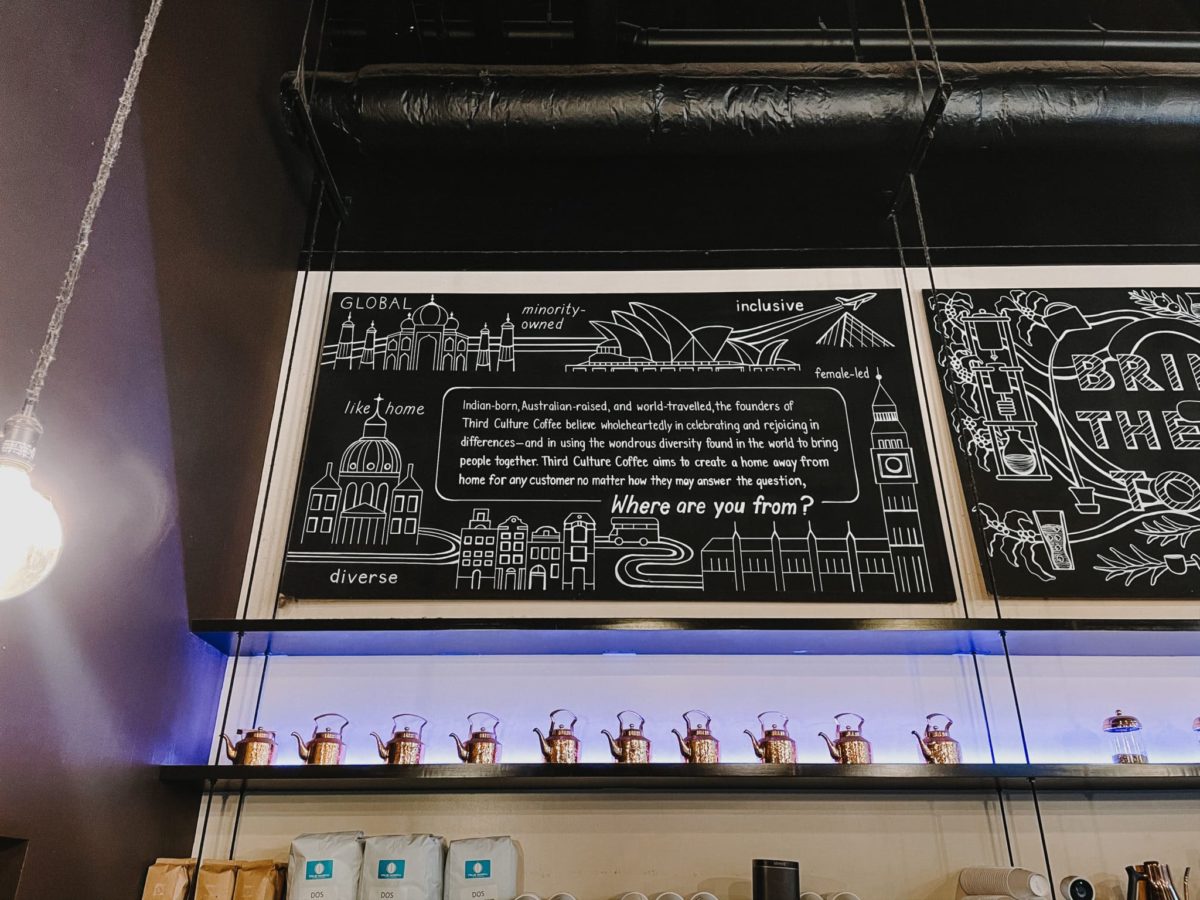 GLOBAL
minority-
owned
inclusive
female-led
like home
Indian-born, Australian-raised, and world-travelled, the founders of
Third Culture Coffee believe wholeheartedly in celebrating and rejoicing in
differences—and in using the wondrous diversity found in the world to bring
people together. Third Culture Coffee aims to create a home away from
home for any customer no matter how they may answer the question,
Where are you from?
diverse
BRIN
THE
DOS
DOS
DOS